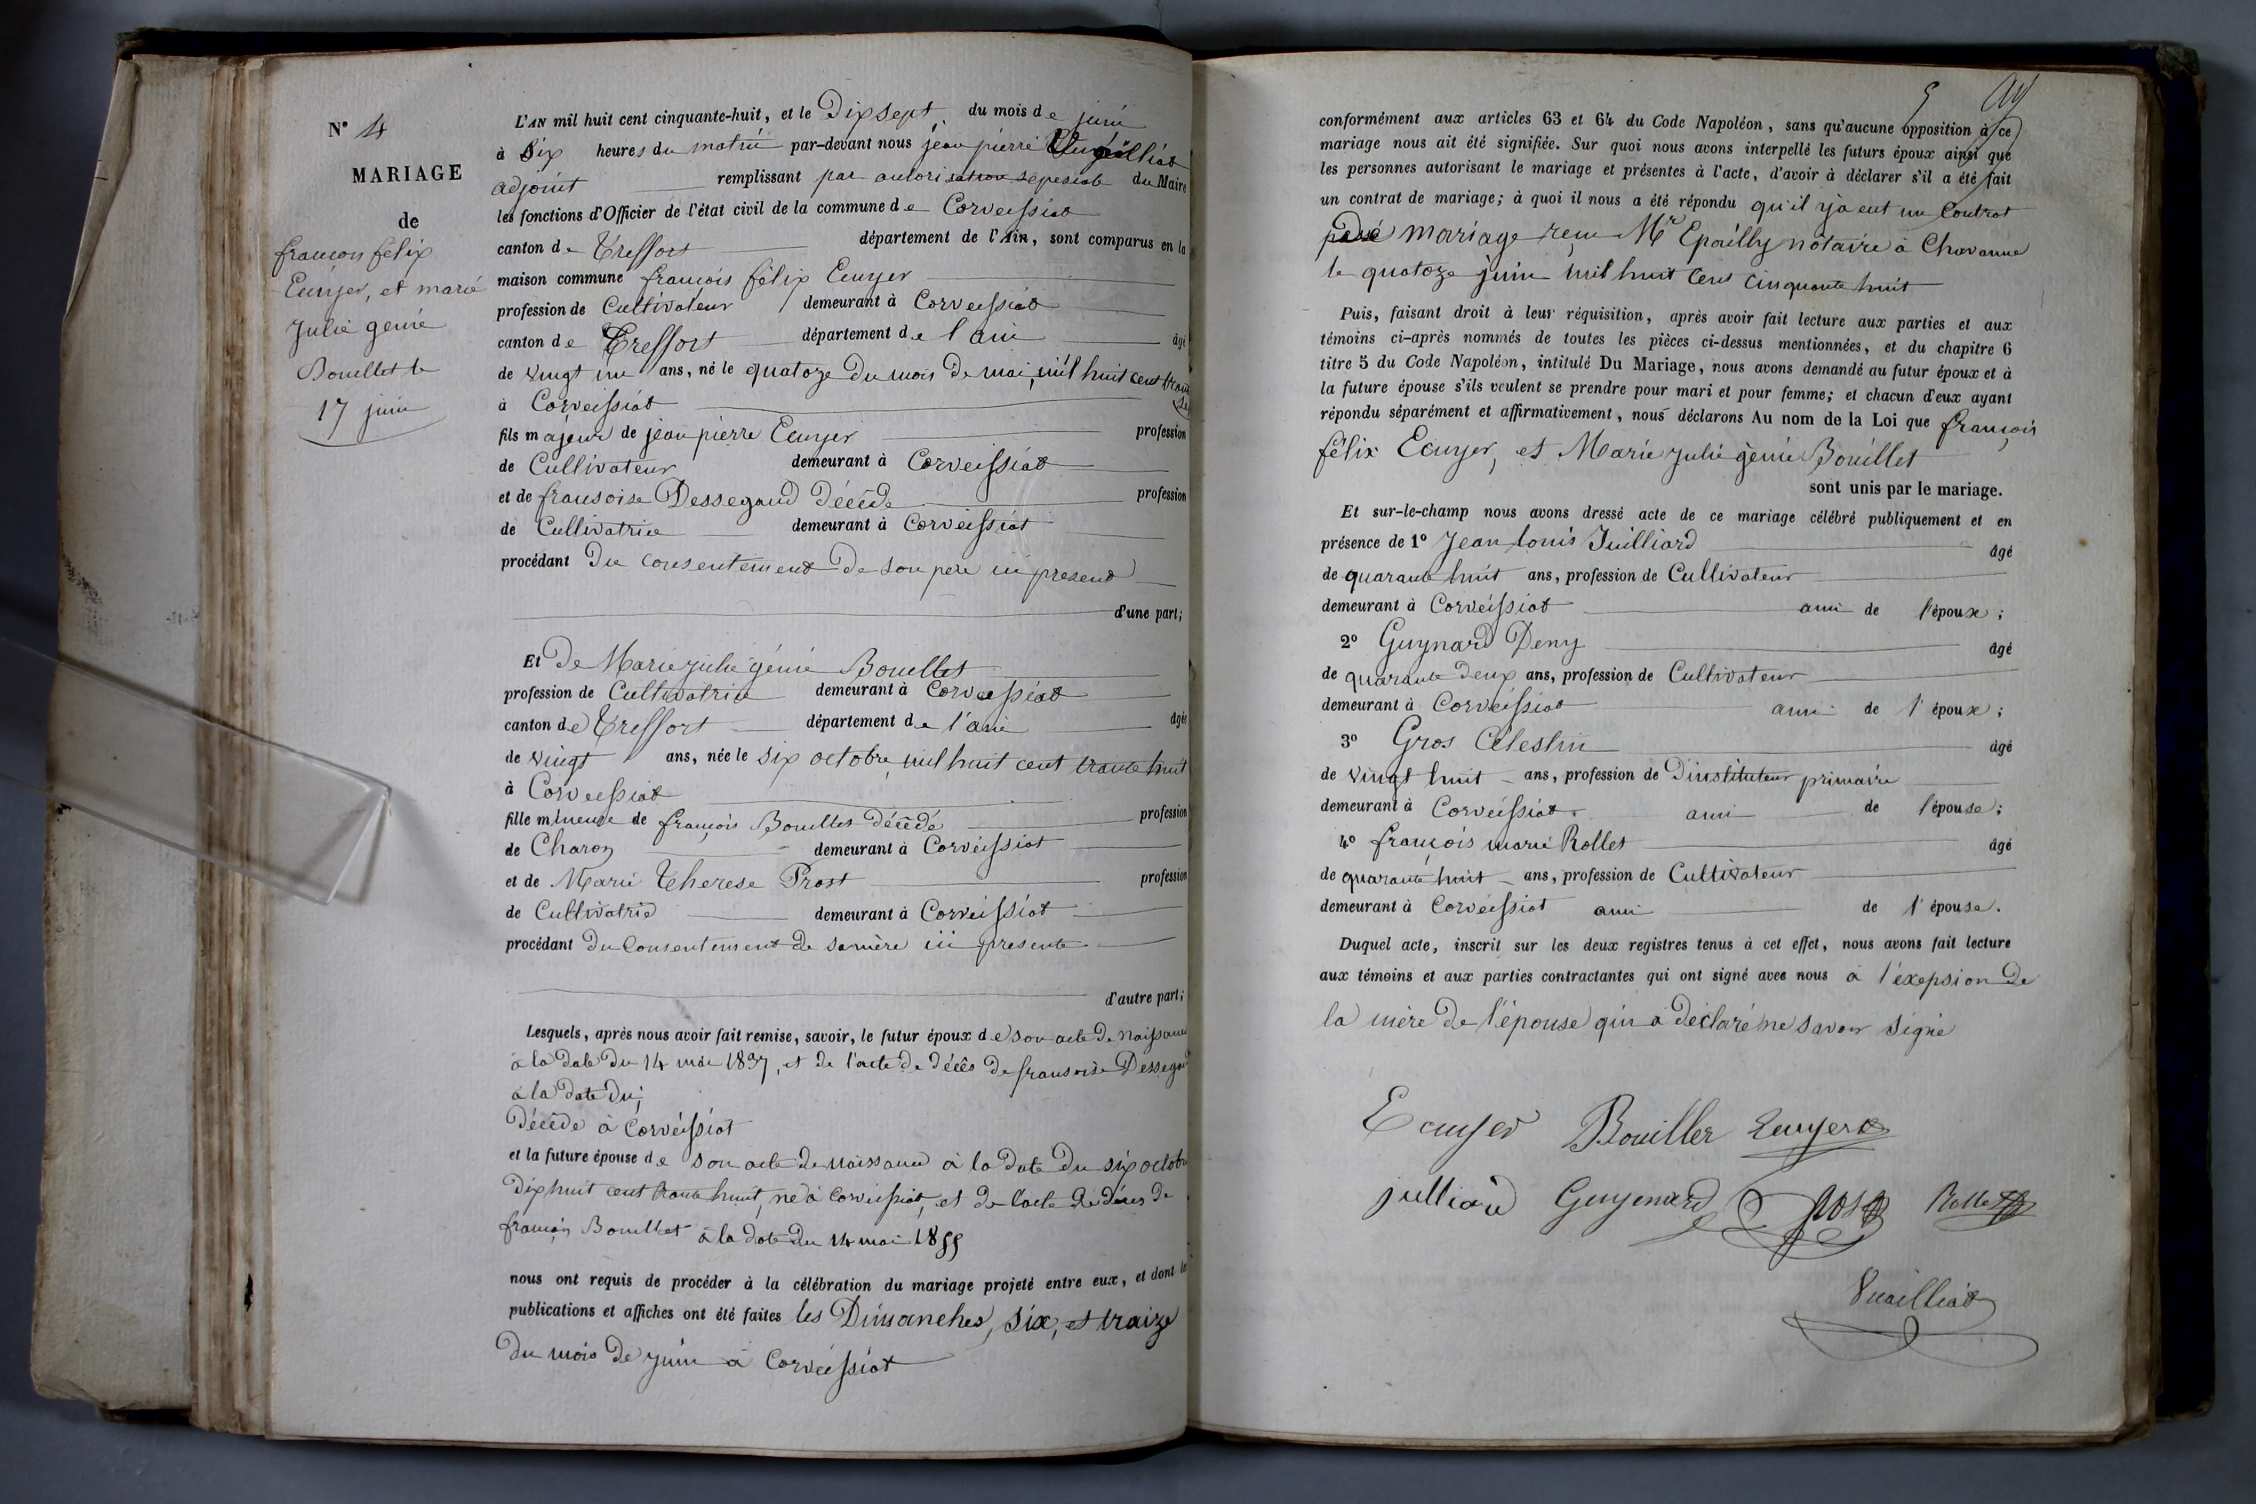 N° 4
MARIAGE
de
françois felix
Ecuyer, et marie
Julie genie
Bouillet le
17 juin
L'AN mil huit cent cinquante-huit, et le Dix sept du mois de juin
à six heures du matin par-devant nous jean pierre Vuailliat
adjoint remplissant par autorisation du Maire
les fonctions d'Officier de l'état civil de la commune de Corveissiat
canton de Treffort département de l'Ain, sont comparus en la
maison commune françois félix Ecuyer
profession de Cultivateur demeurant à Corveissiat
canton de Treffort département de l'ain âgé
de vingt un ans, né le quatoze du mois de mai, mil huit cent
à Corveissiat
fils majeur de jean pierre Ecuyer profession
de Cultivateur demeurant à Corveissiat
et de fransoise Dessegaud décédé profession
de Cultivatrice demeurant à Corveissiat
procédant Du consentement de son père ici present
d'une part;
Et De Marie julie génie Bouillet
profession de Cultivatrice demeurant à Corveissiat
canton de Treffort département de l'ain âgée
de vingt ans, née le six octobre mil huit cent trante huit
à Corveissiat
fille mineure de françois Bouillet décédé profession
de Charon demeurant à Corveissiat
et de Marie Therese Prost profession
de Cultivatrice demeurant à Corveissiat
procédant du Consentement de sa mère ici presente
d'autre part;
Lesquels, après nous avoir fait remise, savoir, le futur époux de son acte de naissance
à la date du 14 mai 1837, et de l'acte de décès de fransoise Dessegaud
à la date du
Décédé à Corveissiat
et la future épouse de son acte de naissance à la date du six octobre
Dix huit cent trante huit, né à Corveissiat, et de l'acte de décès de
françois Bouillet à la date du 14 mai 1855
nous ont requis de procéder à la célébration du mariage projeté entre eux, et dont les
publications et affiches ont été faites les Dimanches, six, et traize
du mois de juin à Corveissiat
conformément aux articles 63 et 64 du Code Napoléon, sans qu'aucune opposition à ce
mariage nous ait été signifiée. Sur quoi nous avons interpellé les futurs époux ainsi que
les personnes autorisant le mariage et présentes à l'acte, d'avoir à déclarer s'il a été fait
un contrat de mariage; à quoi il nous a été répondu qu'il y a eut un Contrat
mariage reçu Mr Epailly notaire à Chavanne
le quatoze juin mil huit cent cinquante huit
Puis, faisant droit à leur réquisition, après avoir fait lecture aux parties et aux
témoins ci-après nommés de toutes les pièces ci-dessus mentionnées, et du chapitre 6
titre 5 du Code Napoléon, intitulé Du Mariage, nous avons demandé au futur époux et à
la future épouse s'ils veulent se prendre pour mari et pour femme; et chacun d'eux ayant
répondu séparément et affirmativement, nous déclarons Au nom de la Loi que françois
félix Ecuyer, et Marie julie génie Bouillet
sont unis par le mariage.
Et sur-le-champ nous avons dressé acte de ce mariage célébré publiquement et en
présence de 1° Jean louis Juilliard âgé
de quarante huit ans, profession de Cultivateur
demeurant à Corveissiat ami de l'époux;
2° Guynard Deny âgé
de quarante deux ans, profession de Cultivateur
demeurant à Corveissiat ami de l'époux;
3° Gros Célestin âgé
de vingt huit ans, profession de D'instituteur primaire
demeurant à Corveissiat ami de l'épouse;
4° françois marie Rollet âgé
de quarante huit ans, profession de Cultivateur
demeurant à Corveissiat ami de l'épouse.
Duquel acte, inscrit sur les deux registres tenus à cet effet, nous avons fait lecture
aux témoins et aux parties contractantes qui ont signé avec nous à l'exepsion de
la mère de l'épouse qui a déclaré ne savoir signé
Ecuyer Bouillet Ecuyer
julliard Guyenard Gros Rollet
Vuailliat